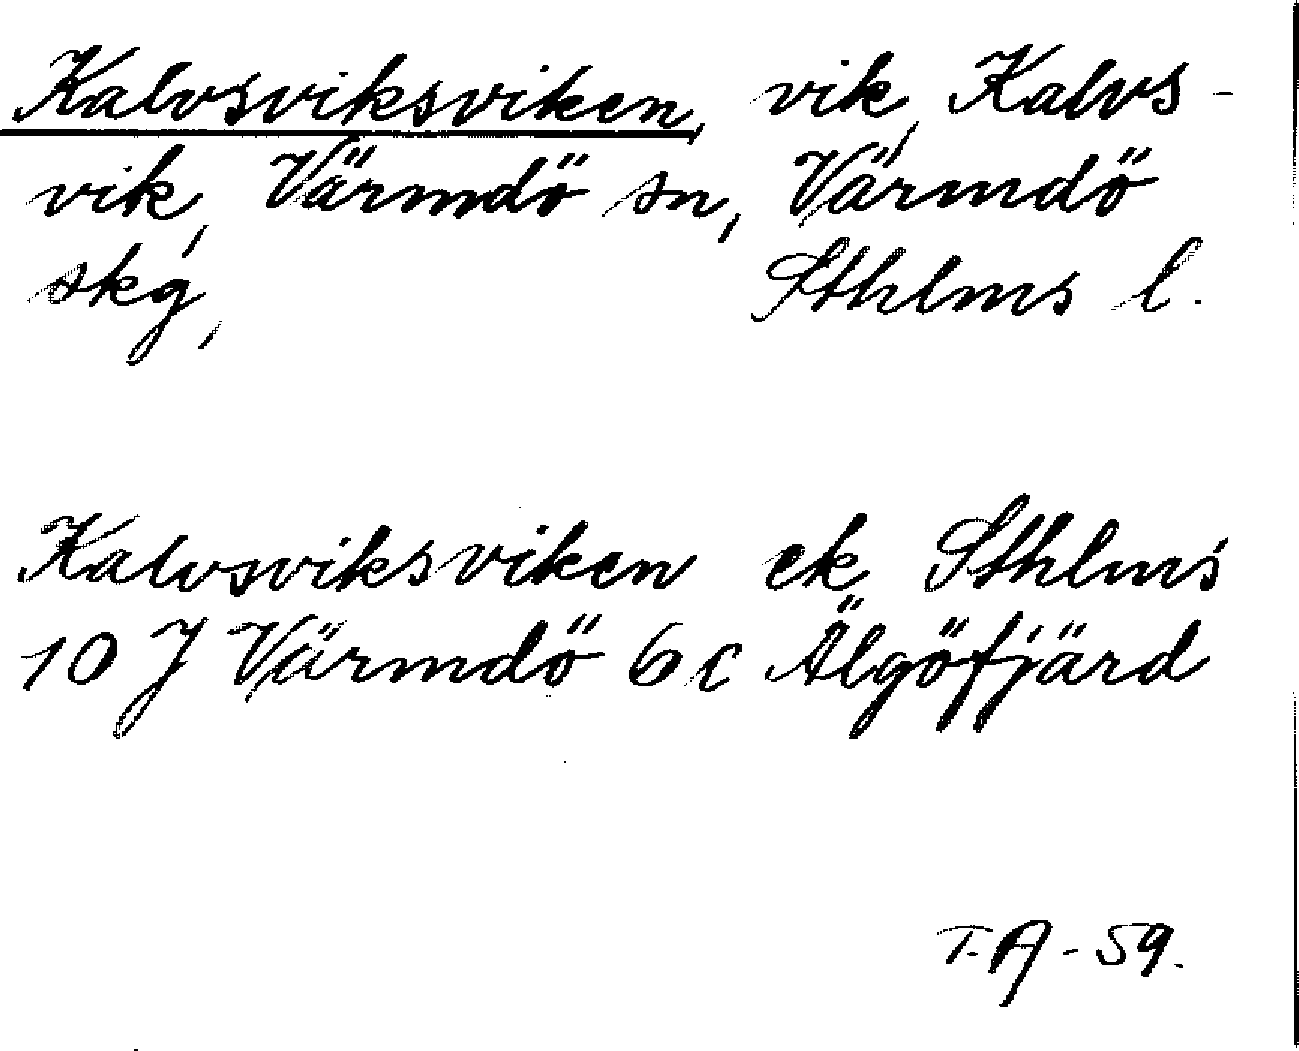 Kalvsviksviken, vik, Kalvs-
vik, Värmdö sn, Värmdö
skg, Sthlms l.
Kalvsviksviken ek Sthlms
10 J Värmdö 6 c Älgöfjärd
T.A - 59.